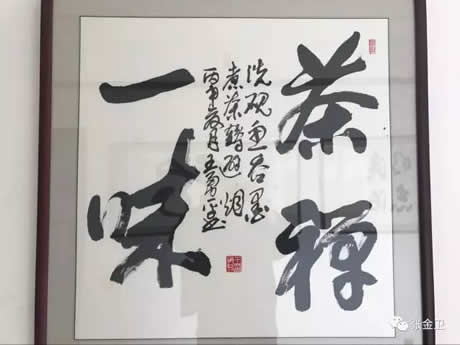 茶禅
一味
洗砚鱼吞墨
煮茶鹤避烟
丙申岁月王勇平书
张金卫